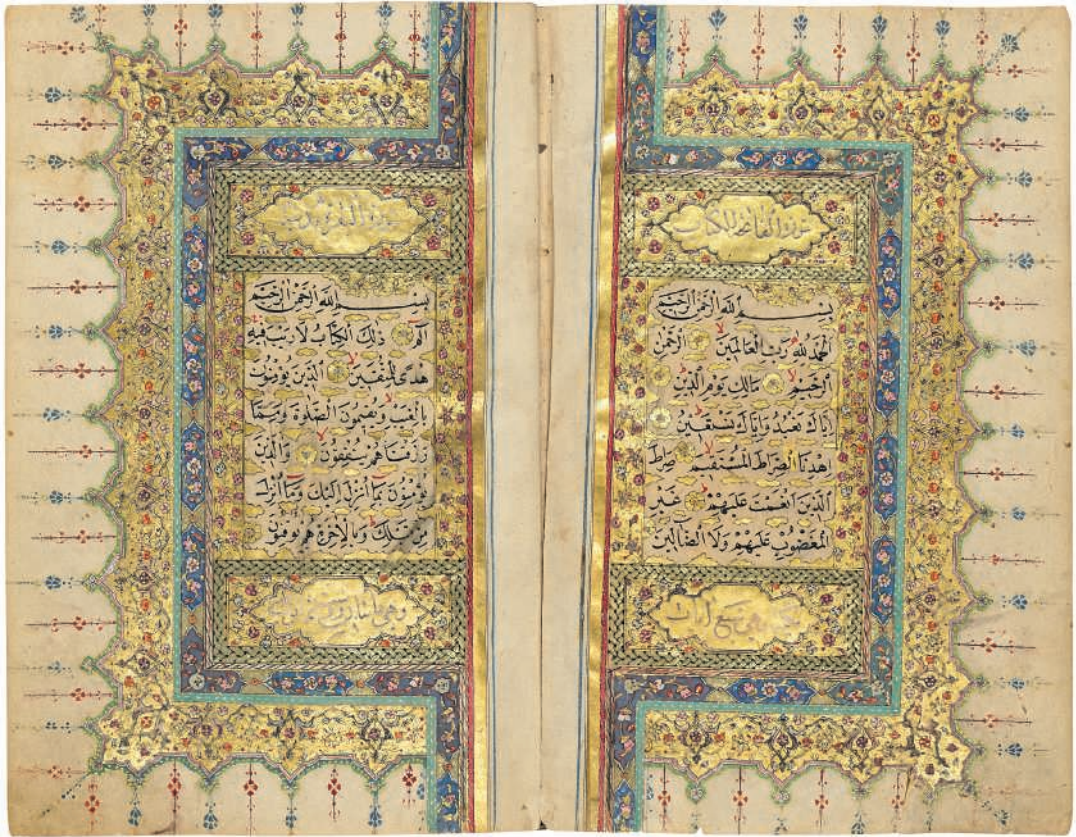 سورة الفاتحة الكتاب
بِسْمِ اللّٰهِ الرَّحْمٰنِ الرَّحِيمِ
اَلْحَمْدُ لِلّٰهِ رَبِّ الْعَالَمِينَ الرَّحْمٰنِ
الرَّحِيمِ مَالِكِ يَوْمِ الدِّينِ
اِيَّاكَ نَعْبُدُ وَاِيَّاكَ نَسْتَعِينُ
اِهْدِنَا الصِّرَاطَ الْمُسْتَقِيمَ صِرَاطَ
الَّذِينَ اَنْعَمْتَ عَلَيْهِمْ غَيْرِ
الْمَغْضُوبِ عَلَيْهِمْ وَلَا الضَّالِّينَ
مكية وهي سبع ايات
سورة
بِسْمِ اللّٰهِ الرَّحْمٰنِ الرَّحِيمِ
الٓمٓ ذٰلِكَ الْكِتَابُ لَا رَيْبَ فِيهِ
هُدًى لِلْمُتَّقِينَ اَلَّذِينَ يُؤْمِنُونَ
بِالْغَيْبِ وَيُقِيمُونَ الصَّلٰوةَ وَمِمَّا
رَزَقْنَاهُمْ يُنْفِقُونَ وَالَّذِينَ
يُؤْمِنُونَ بِمَا اُنْزِلَ اِلَيْكَ وَمَا اُنْزِلَ
مِنْ قَبْلِكَ وَبِالْاٰخِرَةِ هُمْ يُوقِنُونَ
وهي مائتان